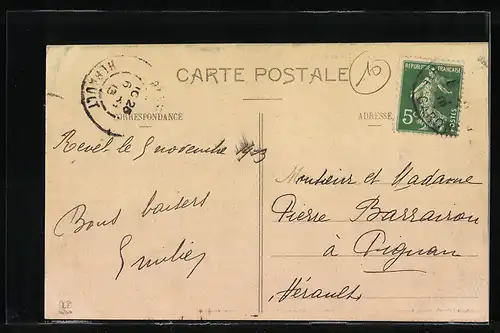 CARTE POSTALE
10
HERAULT
REPUBLIQUE FRANÇAISE
5c
POSTES
CORRESPONDANCE
ADRESSE
Revel le 5 novembre
Bons baisers
Emilie
Monsieur et Madame
Pierre Barrairon
à Pignan
Hérault